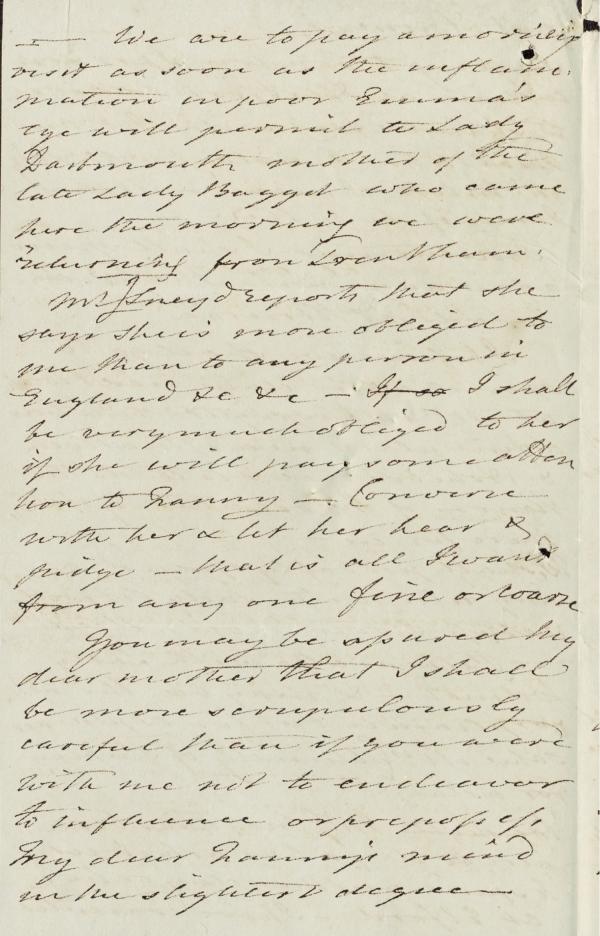 — We are to pay a morning
visit as soon as the inflam-
mation in poor Emma's
eye will permit to Lady
Dartmouth mother of the
late Lady Baggot who came
here the morning we were
returning from Trentham.
Mrs Sneyd reports that she
says she is more obliged to
me than to any person in
England &c &c — If so I shall
be very much obliged to her
if she will pay some atten
tion to Fanny —. Converse
with her & let her hear &
judge — that is all I want
from any one fine or coarse
You may be assured my
dear mother that I shall
be more scrupulously
careful than if you were
with me not to endeavor
to influence or prepossess
my dear Fanny's mind
in the slightest degree —